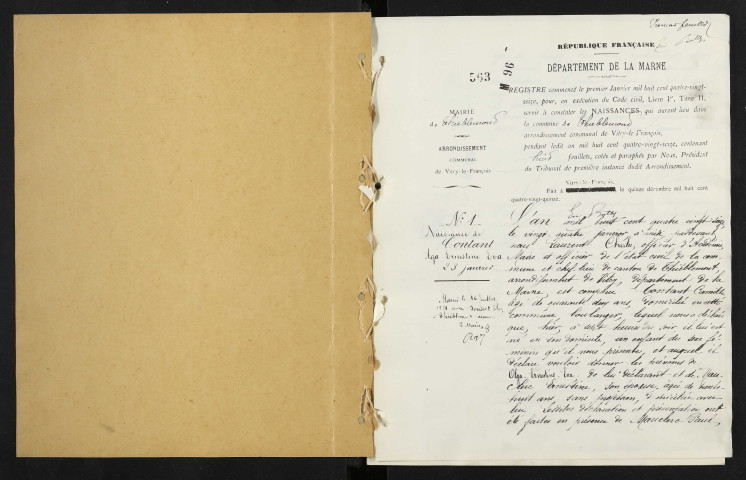 RÉPUBLIQUE FRANÇAISE
DÉPARTEMENT DE LA MARNE
563
M 96
REGISTRE commencé le premier Janvier mil huit cent quatre-vingt-
seize, pour, en exécution du Code civil, Livre Ier, Titre II,
servir à constater les NAISSANCES, qui auront lieu dans
la commune de Thiéblemont
arrondissement communal de Vitry-le-François,
pendant ledit an mil huit cent quatre-vingt-seize, contenant
huit feuillets, cotés et paraphés par Nous, Président
du Tribunal de première instance dudit Arrondissement.
Vitry-le-François,
Fait à le quinze décembre mil huit cent
quatre-vingt-quinze.
MAIRIE
de Thiéblemont
ARRONDISSEMENT
COMMUNAL
de Vitry-le-François
N° 1
Naissance de
Contant
Olga Ernestine Eva
23 janvier
L'an mil huit cent quatre vingt seize
le vingt quatre janvier, à
nous Laurent Charles, officier d'Académie,
Maire et officier de l'état civil de la com-
mune et chef lieu de canton de Thiéblemont
arrondissement de Vitry, département de la
Marne, est comparu Contant Camille
âgé de quarante deux ans, domicilié en cette
commune, boulanger, lequel nous a déclaré
que, hier, à sept heures du soir, il lui est
né en son domicile, un enfant du sexe fé-
minin qu'il nous présente, et auquel il
déclare vouloir donner les prénoms de
Olga Ernestine Eva de lui déclarant et de Mau-
clerc Ernestine, son épouse, âgée de trente
huit ans, sans profession, domiciliée avec
lui. Lesdites déclaration et présentation ont
été faites en présence de Mauclerc Paul,